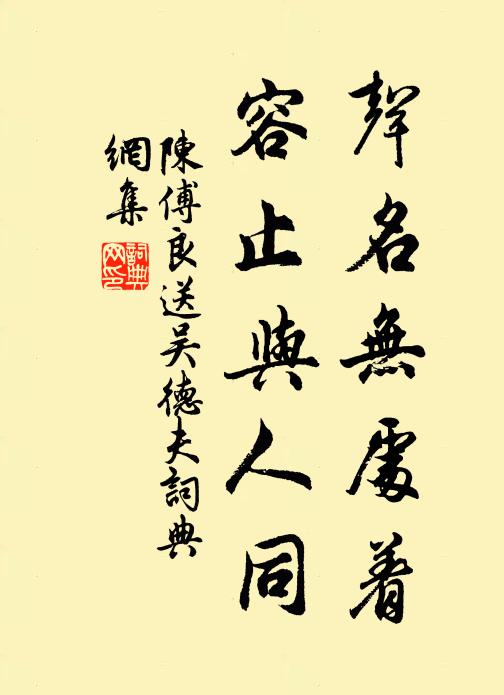 聲名無處着
容止與人同
陳傅良送吴德夫詞典
網集
詞典網印